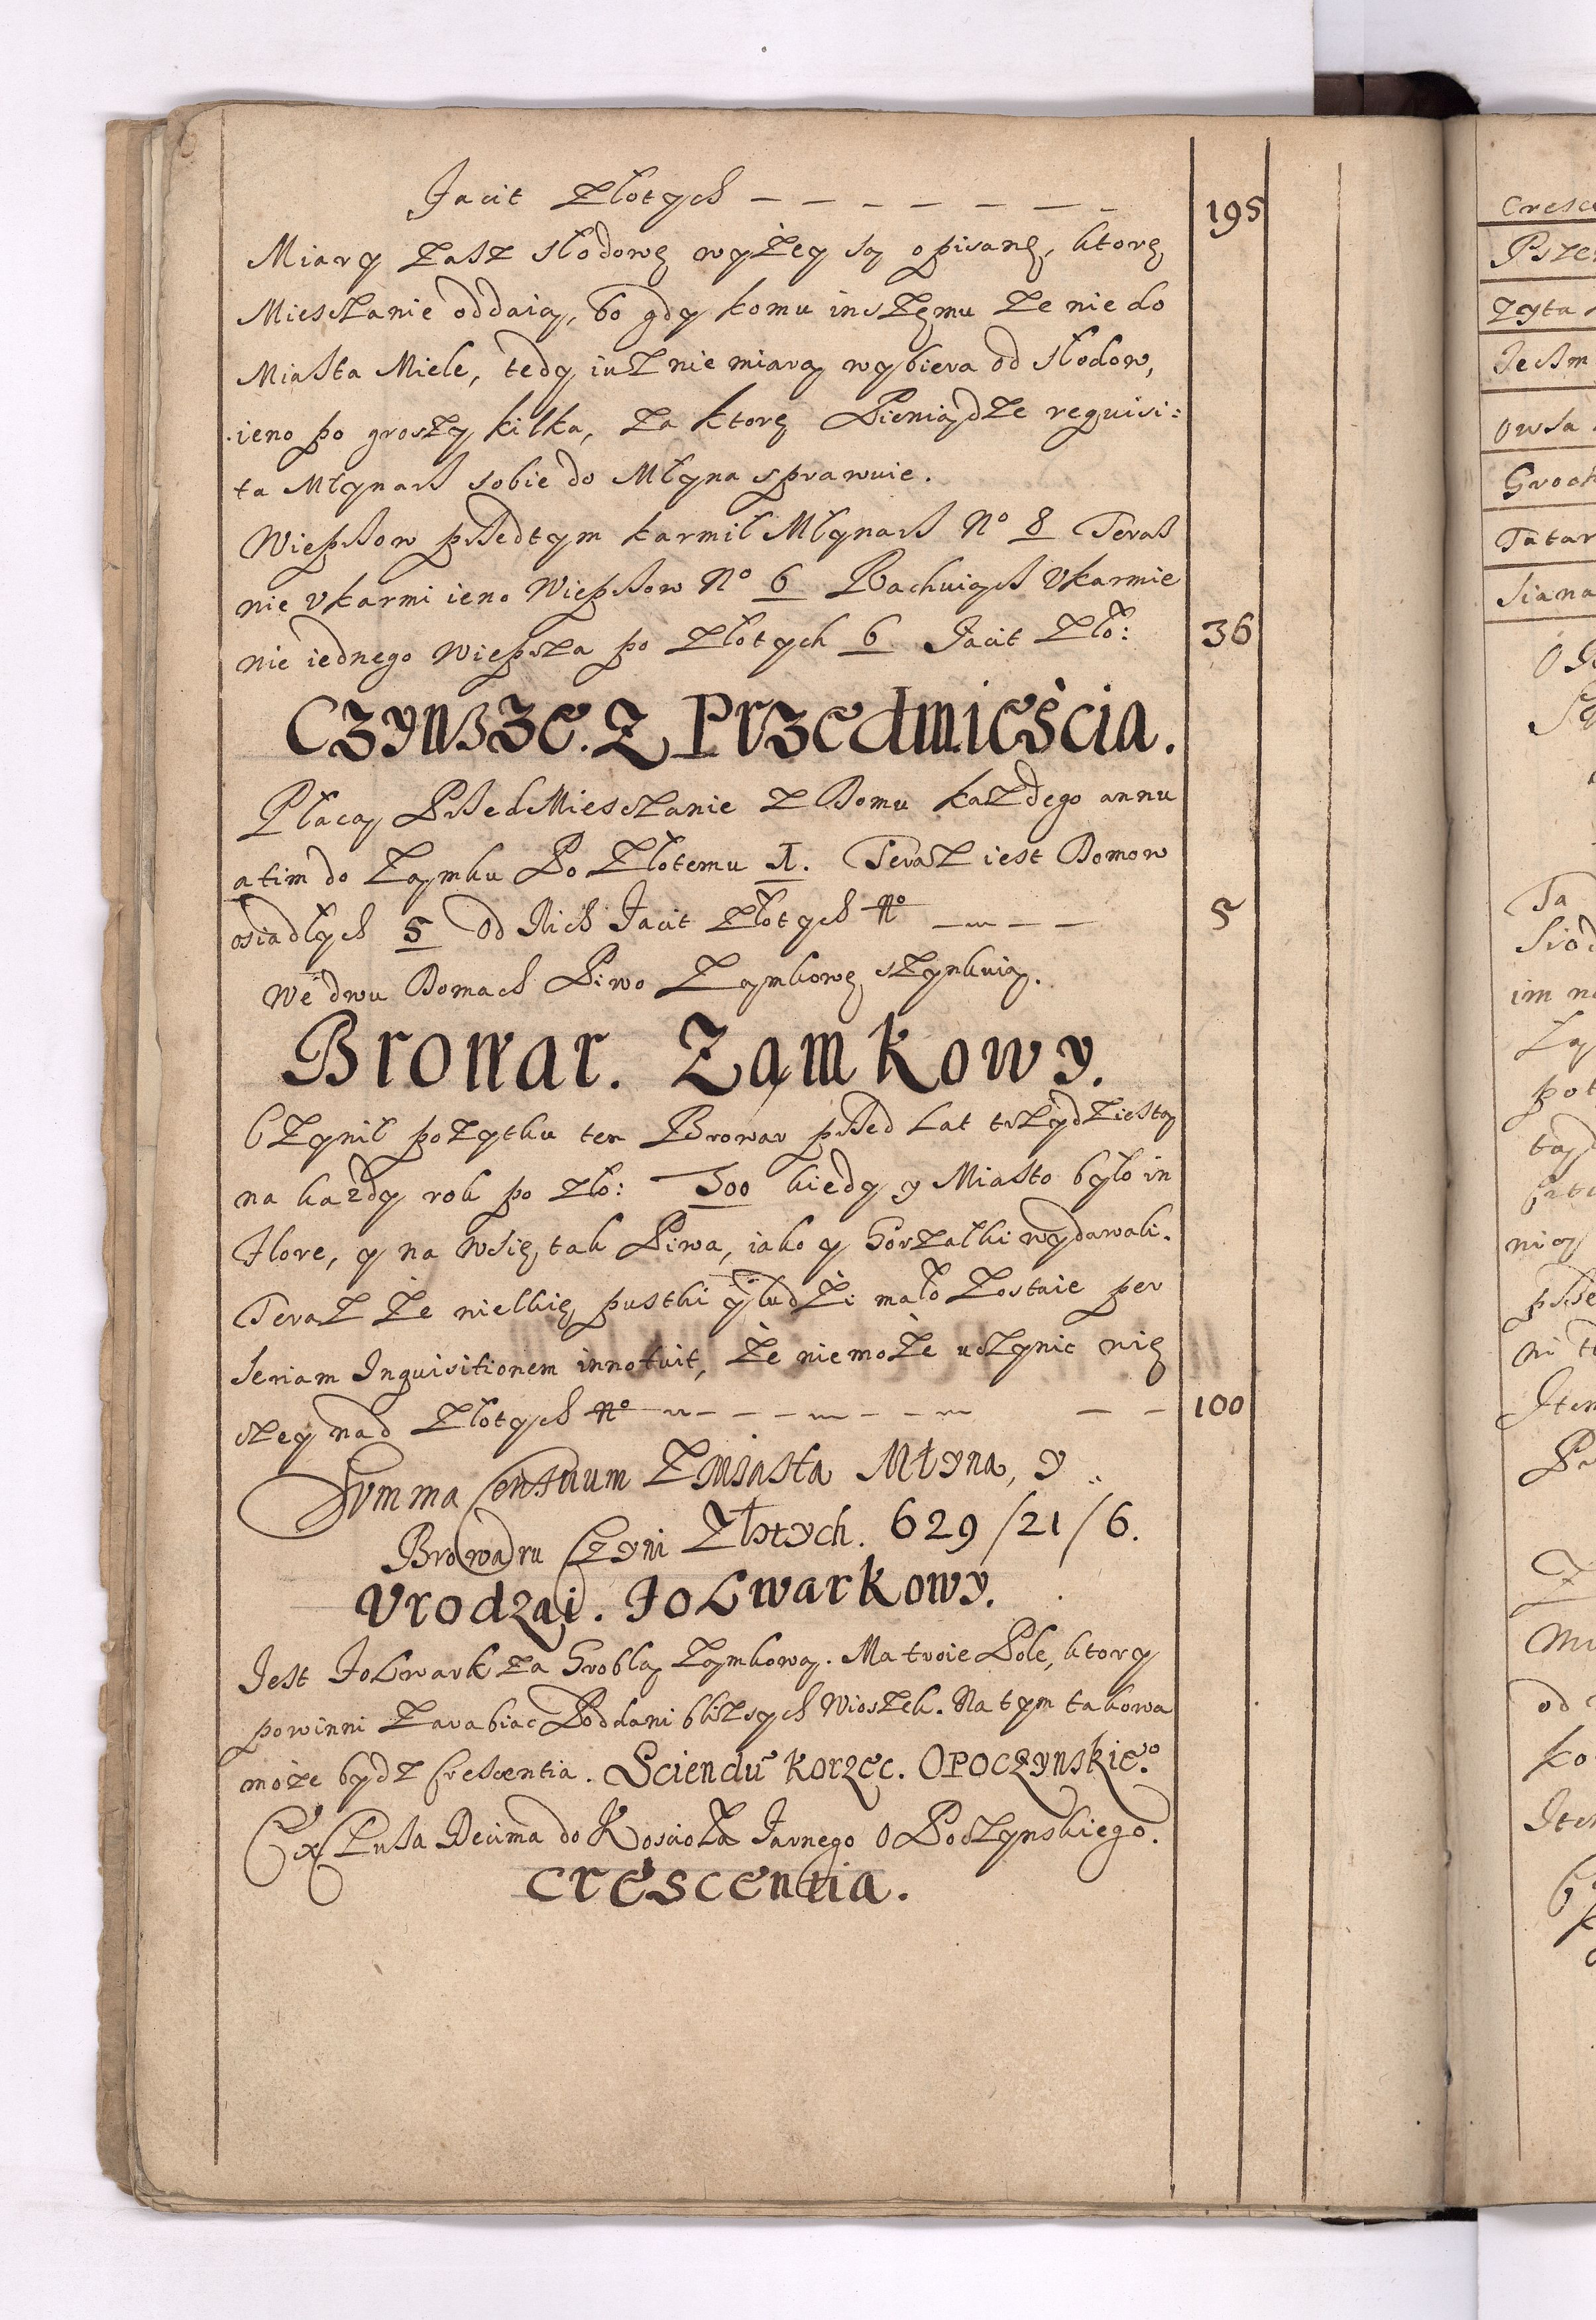 Facit Złotych — — — — — — — 195
Miary zasz słodowę wyżey są opisanę, ktorę
Miesczanie oddaią, bo gdy komu inszęmu ze nie do
Miasta Miele, tedy iuz nie miarą wybiera od słodow,
ieno po groszy kilka, za ktorę Pieniądze requisi:
ta Młynarz sobie do Młyna sprawuie.
Wieprzow przedtym karmił Młynarz No 8 Teraz
nie vkarmi ieno Wieprzow No 6 Rachuiąc Vkarmie
nie iednego Wieprza po Złotych 6 Facit Zło: 36
Czynsze. Z Przedmieścia.
Płacą PrzedMiesczanie z Domu kazdego annu
atim do Zamku Po Złotemu 1. Teraz iest Domow
osiadłych 5 Od Nich Facit Złotych No — — — 5
We dwu Domach Piwo Zamkowę szynkuią.
Browar. Zamkowy.
Czynił pozytku ten Browar przed Lat trzydziestą
na kazdy rok po zło: 500 kiedy y Miasto było in
Flore, y na Wsię, tak Piwa, iako y Gorzałki wydawali.
Teraz Że wielkię pustki y ludzi mało Zostaie per
seriam Inquisitionem innotuit, Że niemoże uczynic wię
szey nad Złotych No — — — — — — 100
Summa Censuum Z Miasta Młyna, y
Browaru Czyni Złotych. 629/21/6.
Vrodzai. Folwarkowy.
Jest Folwark za Groblą Zamkową. Ma troie Pole, ktory
powinni Zarabiac Poddani blizsych Wioszek. Na tym takowa
może bydz Crescentia. Sciendū Korzec. Opoczynskieo
Exclusa Decima do Koscioła Farnego Opoczynskiego.
Crescentia.